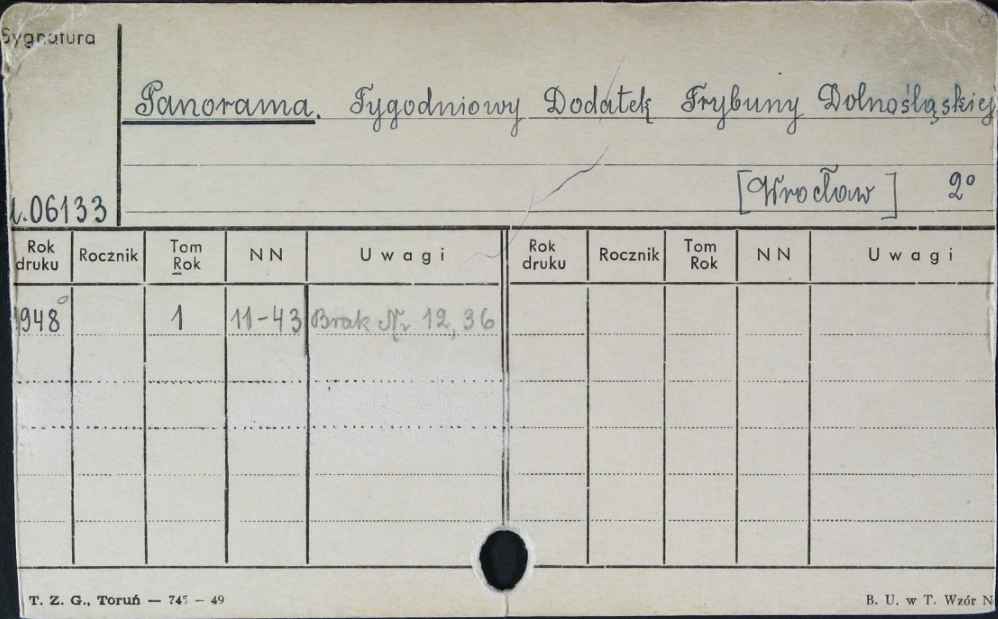 Sygnatura
Panorama. Tygodniowy Dodatek Trybuny Dolnośląskiej
[Wrocław] 2°
.06133
Rok druku Rocznik Tom Rok NN Uwagi Rok druku Rocznik Tom Rok NN Uwagi
1948 1 11-43 Brak Nr 12, 36
T. Z. G., Toruń — 745 – 49
B. U. w T. Wzór N